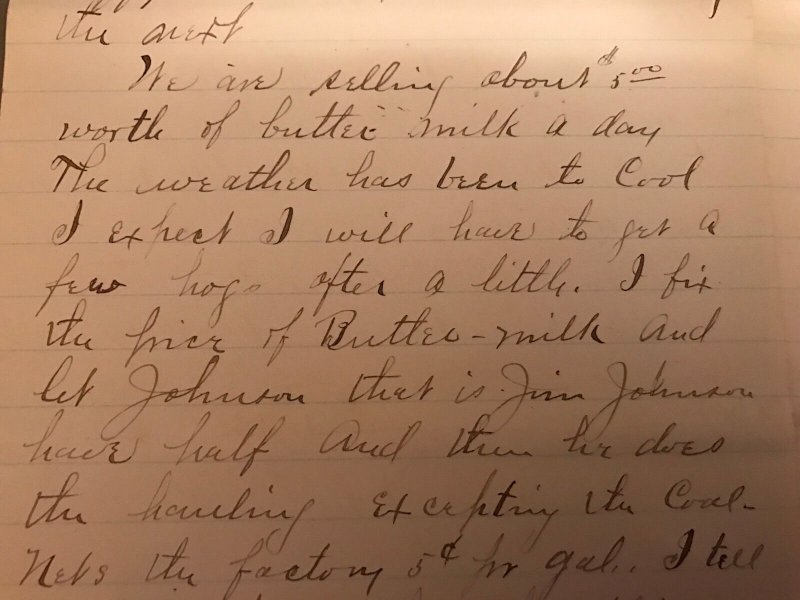 the next
We are selling about $5.00
worth of butter milk a day
The weather has been to Cool
I expect I will have to get a
few hogs after a little. I fix
the price of Butter-milk and
let Johnson that is Jim Johnson
have half And then he does
the hauling excepting the Coal-
Nets the factory 5¢ pr gal. I tell